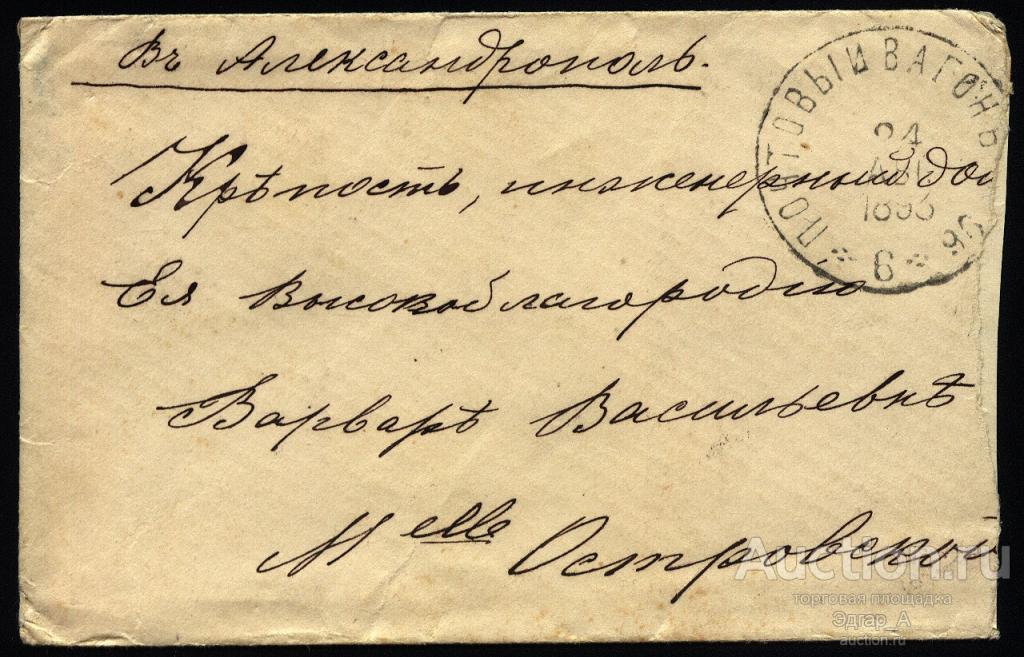 Въ Александрополь.
ПОЧТОВЫЙ ВАГОНЪ
24
1893
6
Крѣпость, инженерный дом
Ея Высокоблагородію
Варварѣ Васильевнѣ
Melle Островской
Auction.ru
торговая площадка
Эдгар_А
auction.ru